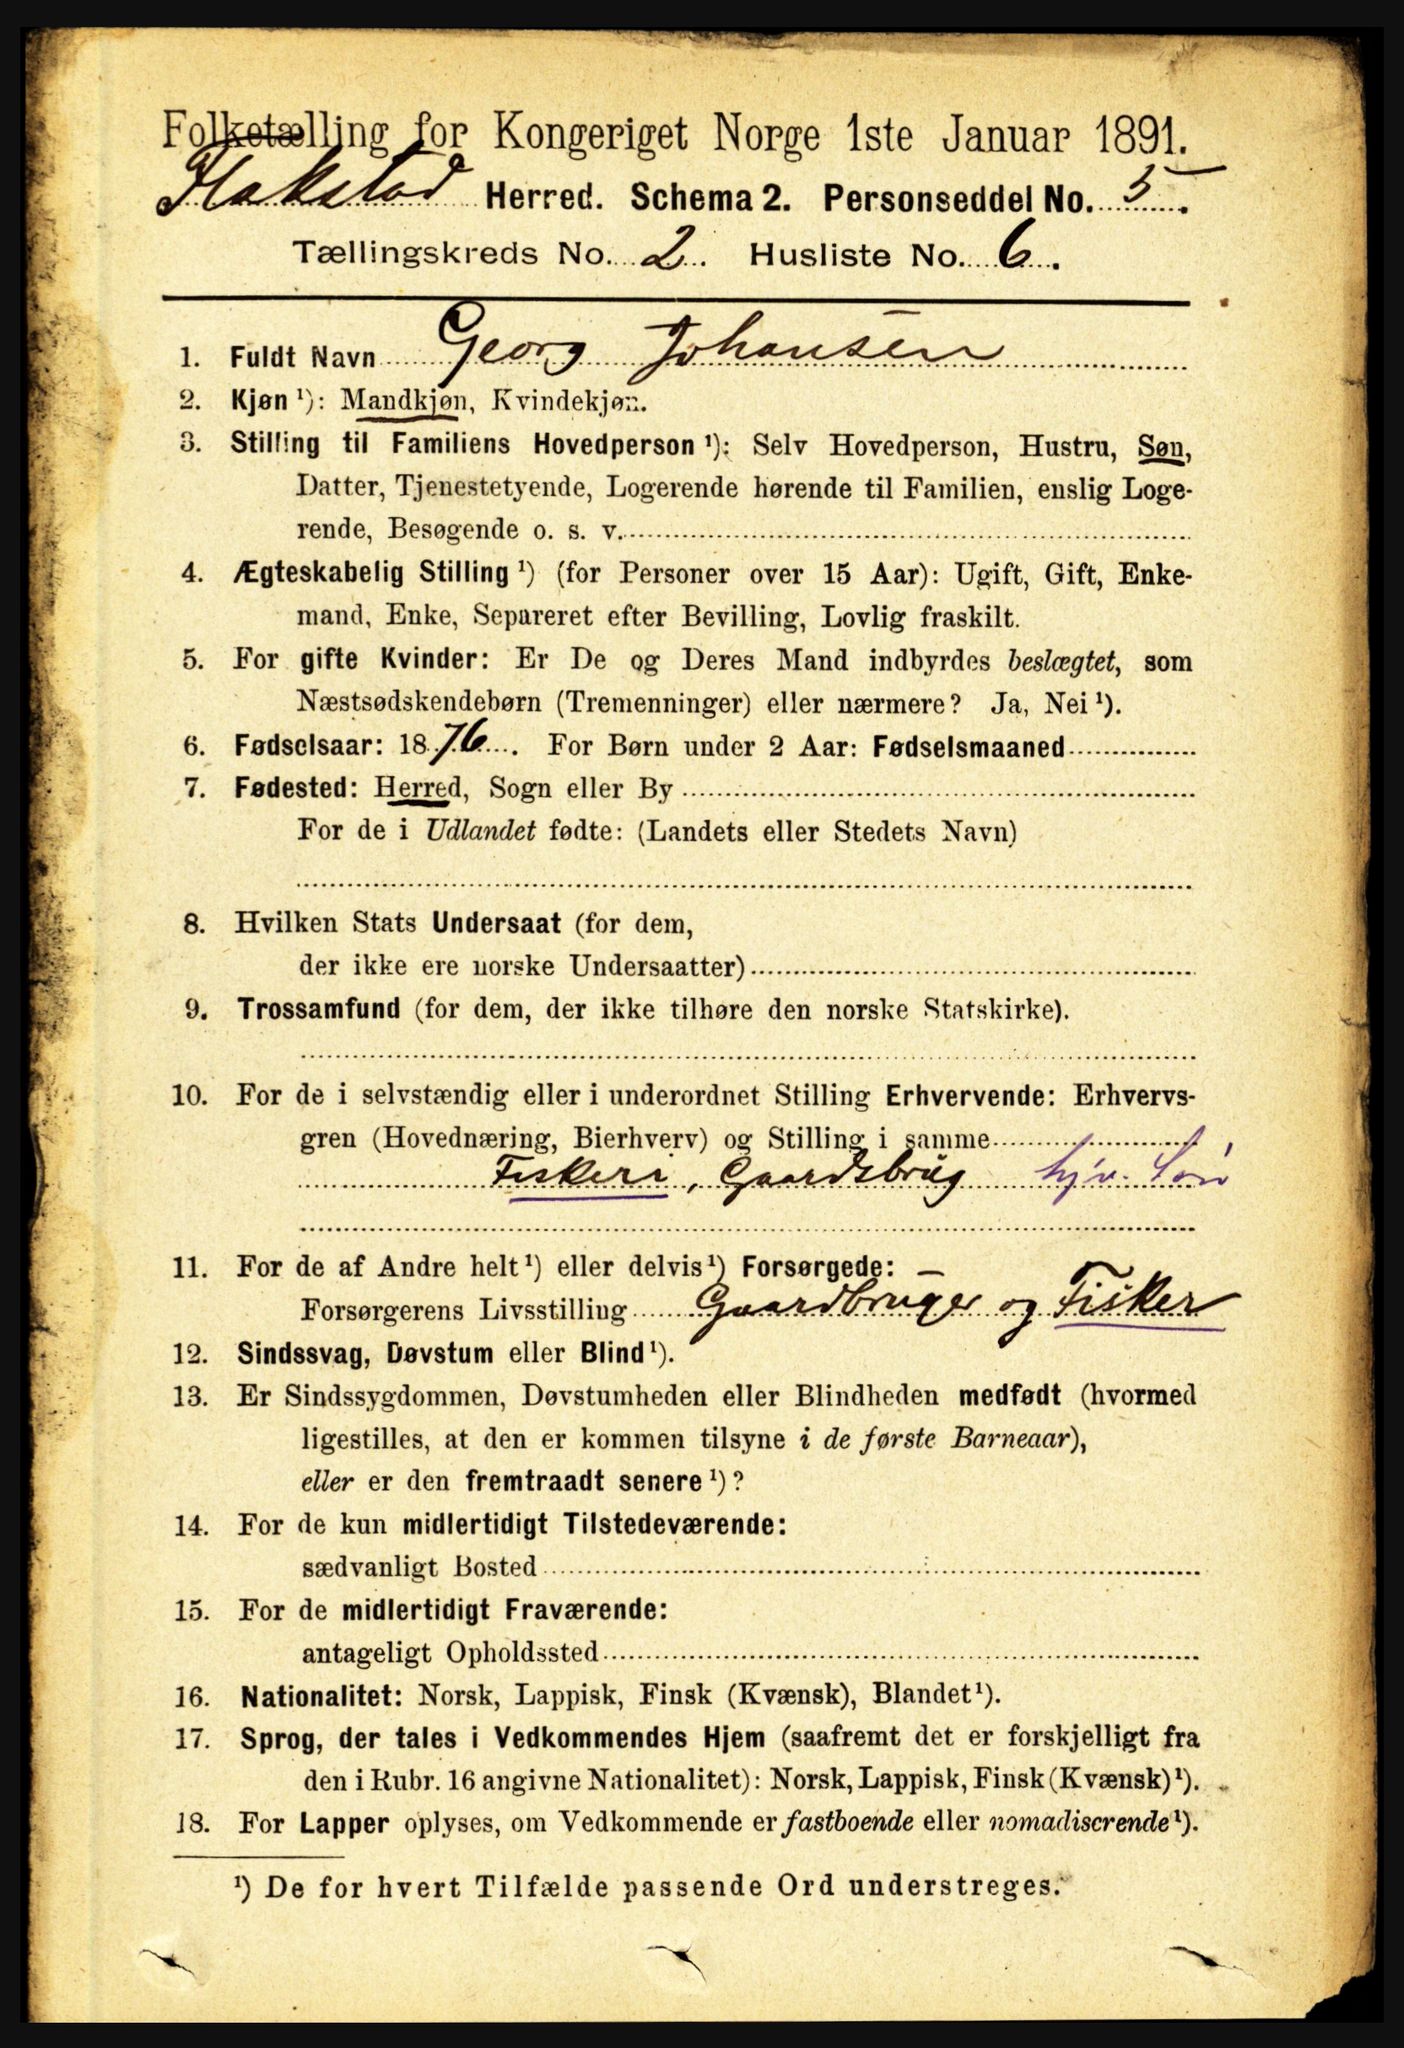 Folketælling for Kongeriget Norge 1ste Januar 1891.
Flakstad Herred. Schema 2. Personseddel No. 5.
Tællingskreds No. 2. Husliste No. 6.
1. Fuldt Navn Georg Johansen
2. Kjøn ¹): Mandkjøn, Kvindekjøn.
3. Stilling til Familiens Hovedperson ¹): Selv Hovedperson, Hustru, Søn,
Datter, Tjenestetyende, Logerende hørende til Familien, enslig Loge-
rende, Besøgende o. s. v.
4. Ægteskabelig Stilling ¹) (for Personer over 15 Aar): Ugift, Gift, Enke-
mand, Enke, Separeret efter Bevilling, Lovlig fraskilt.
5. For gifte Kvinder: Er De og Deres Mand indbyrdes beslægtet, som
Næstsødskendebørn (Tremenninger) eller nærmere? Ja, Nei ¹).
6. Fødselsaar: 1876. For Børn under 2 Aar: Fødselsmaaned
7. Fødested: Herred, Sogn eller By
For de i Udlandet fødte: (Landets eller Stedets Navn)
8. Hvilken Stats Undersaat (for dem,
der ikke ere norske Undersaatter)
9. Trossamfund (for dem, der ikke tilhøre den norske Statskirke).
10. For de i selvstændig eller i underordnet Stilling Erhvervende: Erhvervs-
gren (Hovednæring, Bierhverv) og Stilling i samme
Fiskeri, Gaardsbrug hjv. Søn
11. For de af Andre helt ¹) eller delvis ¹) Forsørgede: –
Forsørgerens Livsstilling Gaardbruger og Fisker
12. Sindssvag, Døvstum eller Blind ¹).
13. Er Sindssygdommen, Døvstumheden eller Blindheden medfødt (hvormed
ligestilles, at den er kommen tilsyne i de første Barneaar),
eller er den fremtraadt senere ¹)?
14. For de kun midlertidigt Tilstedeværende:
sædvanligt Bosted
15. For de midlertidigt Fraværende:
antageligt Opholdssted
16. Nationalitet: Norsk, Lappisk, Finsk (Kvænsk), Blandet ¹).
17. Sprog, der tales i Vedkommendes Hjem (saafremt det er forskjelligt fra
den i Rubr. 16 angivne Nationalitet): Norsk, Lappisk, Finsk (Kvænsk) ¹).
18. For Lapper oplyses, om Vedkommende er fastboende eller nomadiserende ¹).
¹) De for hvert Tilfælde passende Ord understreges.